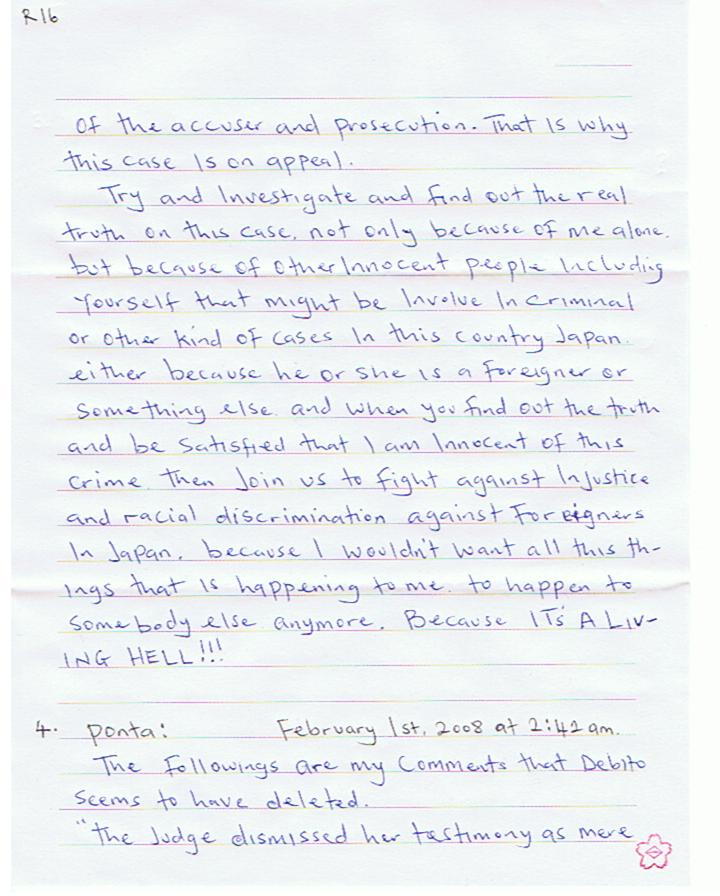 R16
Of the accuser and prosecution. That is why
this case is on appeal.
Try and Investigate and find out the real
truth on this case, not only because of me alone.
but because of other Innocent people Including
yourself that might be Involve In criminal
or other kind of cases In this country Japan.
either because he or she is a foreigner or
something else. and when you find out the truth
and be satisfied that I am Innocent of this
crime. then Join us to fight against Injustice
and racial discrimination against Foreigners
In Japan. because I wouldn't want all this th-
ings that is happening to me. to happen to
somebody else anymore. Because IT'S A LIV-
ING HELL!!!
4. ponta: February 1st, 2008 at 2:42 am.
The Followings are my Comments that Debito
seems to have deleted.
"the Judge dismissed her testimony as mere